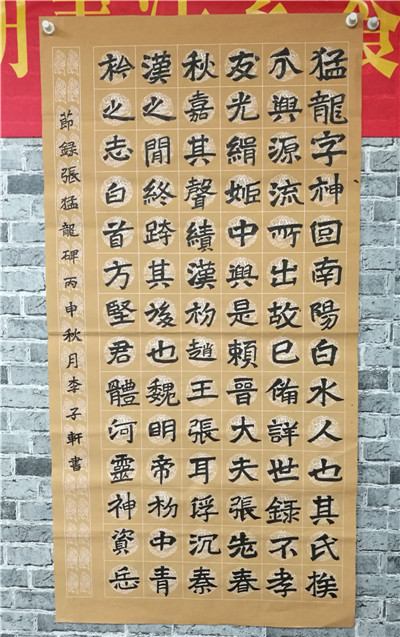 猛龍字神囧南陽白水人也其氏族
分興源流所出故已備詳世錄不孝
友光緝姬中興是賴晉大夫張老春
秋嘉其聲績漢初趙王張耳浮沉秦
漢之閒終跨其後也魏明帝初中青
衿之志白首方堅君體河靈神資岳
節錄張猛龍碑丙申秋月李子軒書